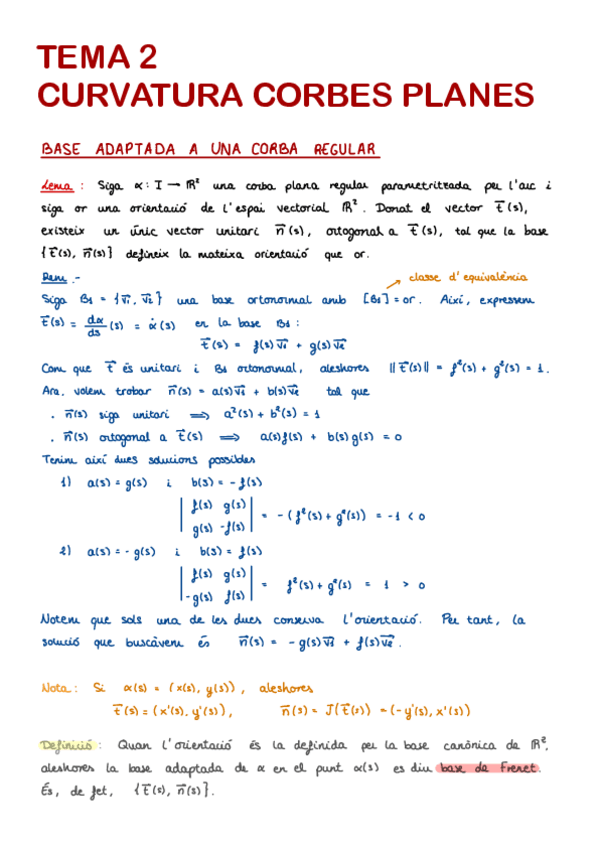 TEMA 2
CURVATURA CORBES PLANES
BASE ADAPTADA A UNA CORBA REGULAR
Lema : Siga α : I → ℝ² una corba plana regular parametritzada per l'arc i
siga or una orientació de l'espai vectorial ℝ². Donat el vector t⃗(s),
existeix un únic vector unitari n⃗(s), ortogonal a t⃗(s), tal que la base
{t⃗(s), n⃗(s)} defineix la mateixa orientació que or.
Dem .-
classe d'equivalència
Siga B₁ = {v⃗₁, v⃗₂} una base ortonormal amb [B₁] = or. Així, expressem
t⃗(s) = dα/ds (s) = α̇(s) en la base B₁ :
t⃗(s) = f(s)v⃗₁ + g(s)v⃗₂
Com que t⃗ és unitari i B₁ ortonormal, aleshores ||t⃗(s)|| = f²(s) + g²(s) = 1.
Ara, volem trobar n⃗(s) = a(s)v⃗₁ + b(s)v⃗₂ tal que
. n⃗(s) siga unitari ⟹ a²(s) + b²(s) = 1
. n⃗(s) ortogonal a t⃗(s) ⟹ a(s)f(s) + b(s)g(s) = 0
Tenim així dues solucions possibles
1) a(s) = g(s) i b(s) = - f(s)
| f(s) g(s) |
| g(s) -f(s) | = - (f²(s) + g²(s)) = -1 < 0
2) a(s) = - g(s) i b(s) = f(s)
| f(s) g(s) |
| -g(s) f(s) | = f²(s) + g²(s) = 1 > 0
Notem que sols una de les dues conserva l'orientació. Per tant, la
solució que buscàvem és n⃗(s) = - g(s)v⃗₁ + f(s)v⃗₂.
Nota : Si α(s) = (x(s), y(s)), aleshores
t⃗(s) = (x'(s), y'(s)), n⃗(s) = J(t⃗(s)) = (-y'(s), x'(s))
Definició : Quan l'orientació és la definida per la base canònica de ℝ²,
aleshores la base adaptada de α en el punt α(s) es diu base de Frenet.
És, de fet, {t⃗(s), n⃗(s)}.